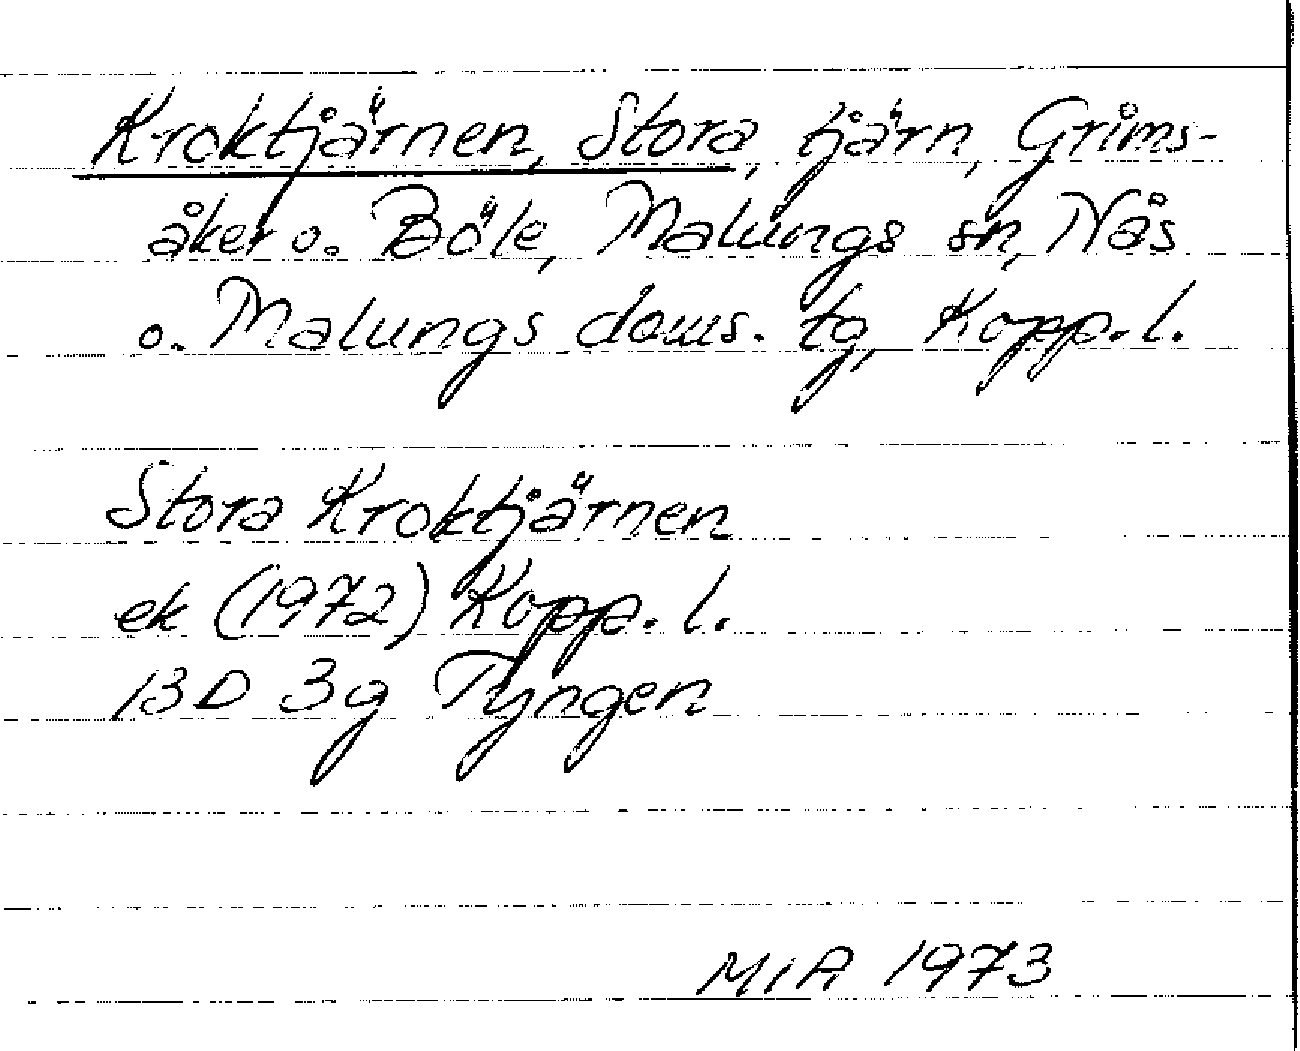 Kroktjärnen, Stora, tjärn, Grims-
åker o. Böle, Malungs sn, Nås
o. Malungs doms. tg, Kopp. l.
Stora Kroktjärnen
ek (1972) Kopp. l.
13D 3g Tyngen
MIA 1973